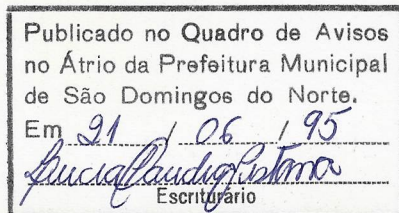 Publicado no Quadro de Avisos
no Átrio da Prefeitura Municipal
de São Domingos do Norte.
Em 21 / 06 / 95
Escriturário